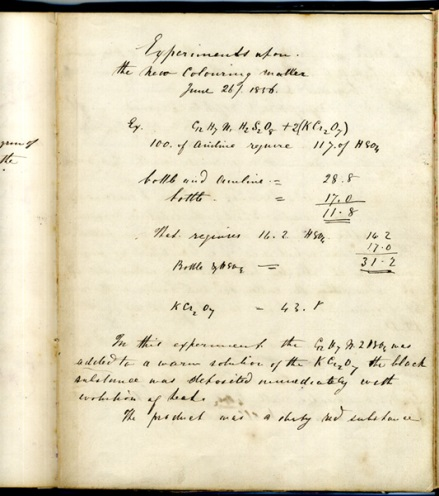 gram of
the
Experiments upon
the new Colouring matter
June 26/. 1856.
Ex. C12 H7 N. H2 S2 O8 + 2(KCr2O7)
100. of Aniline require 117. of HSO4
bottle and aniline = 28.8
bottle = 17.0
11.8
That requires 16.2 HSO4 16.2
17.0
Bottle & HSO4 = 31.2
KCr2O7 - 43.8
In this experiment the C12 H7 N 2HSO4 was
added to a warm solution of the KCr2O7 the black
substance was deposited immediately with
evolution of heat.
The product was a dirty red substance